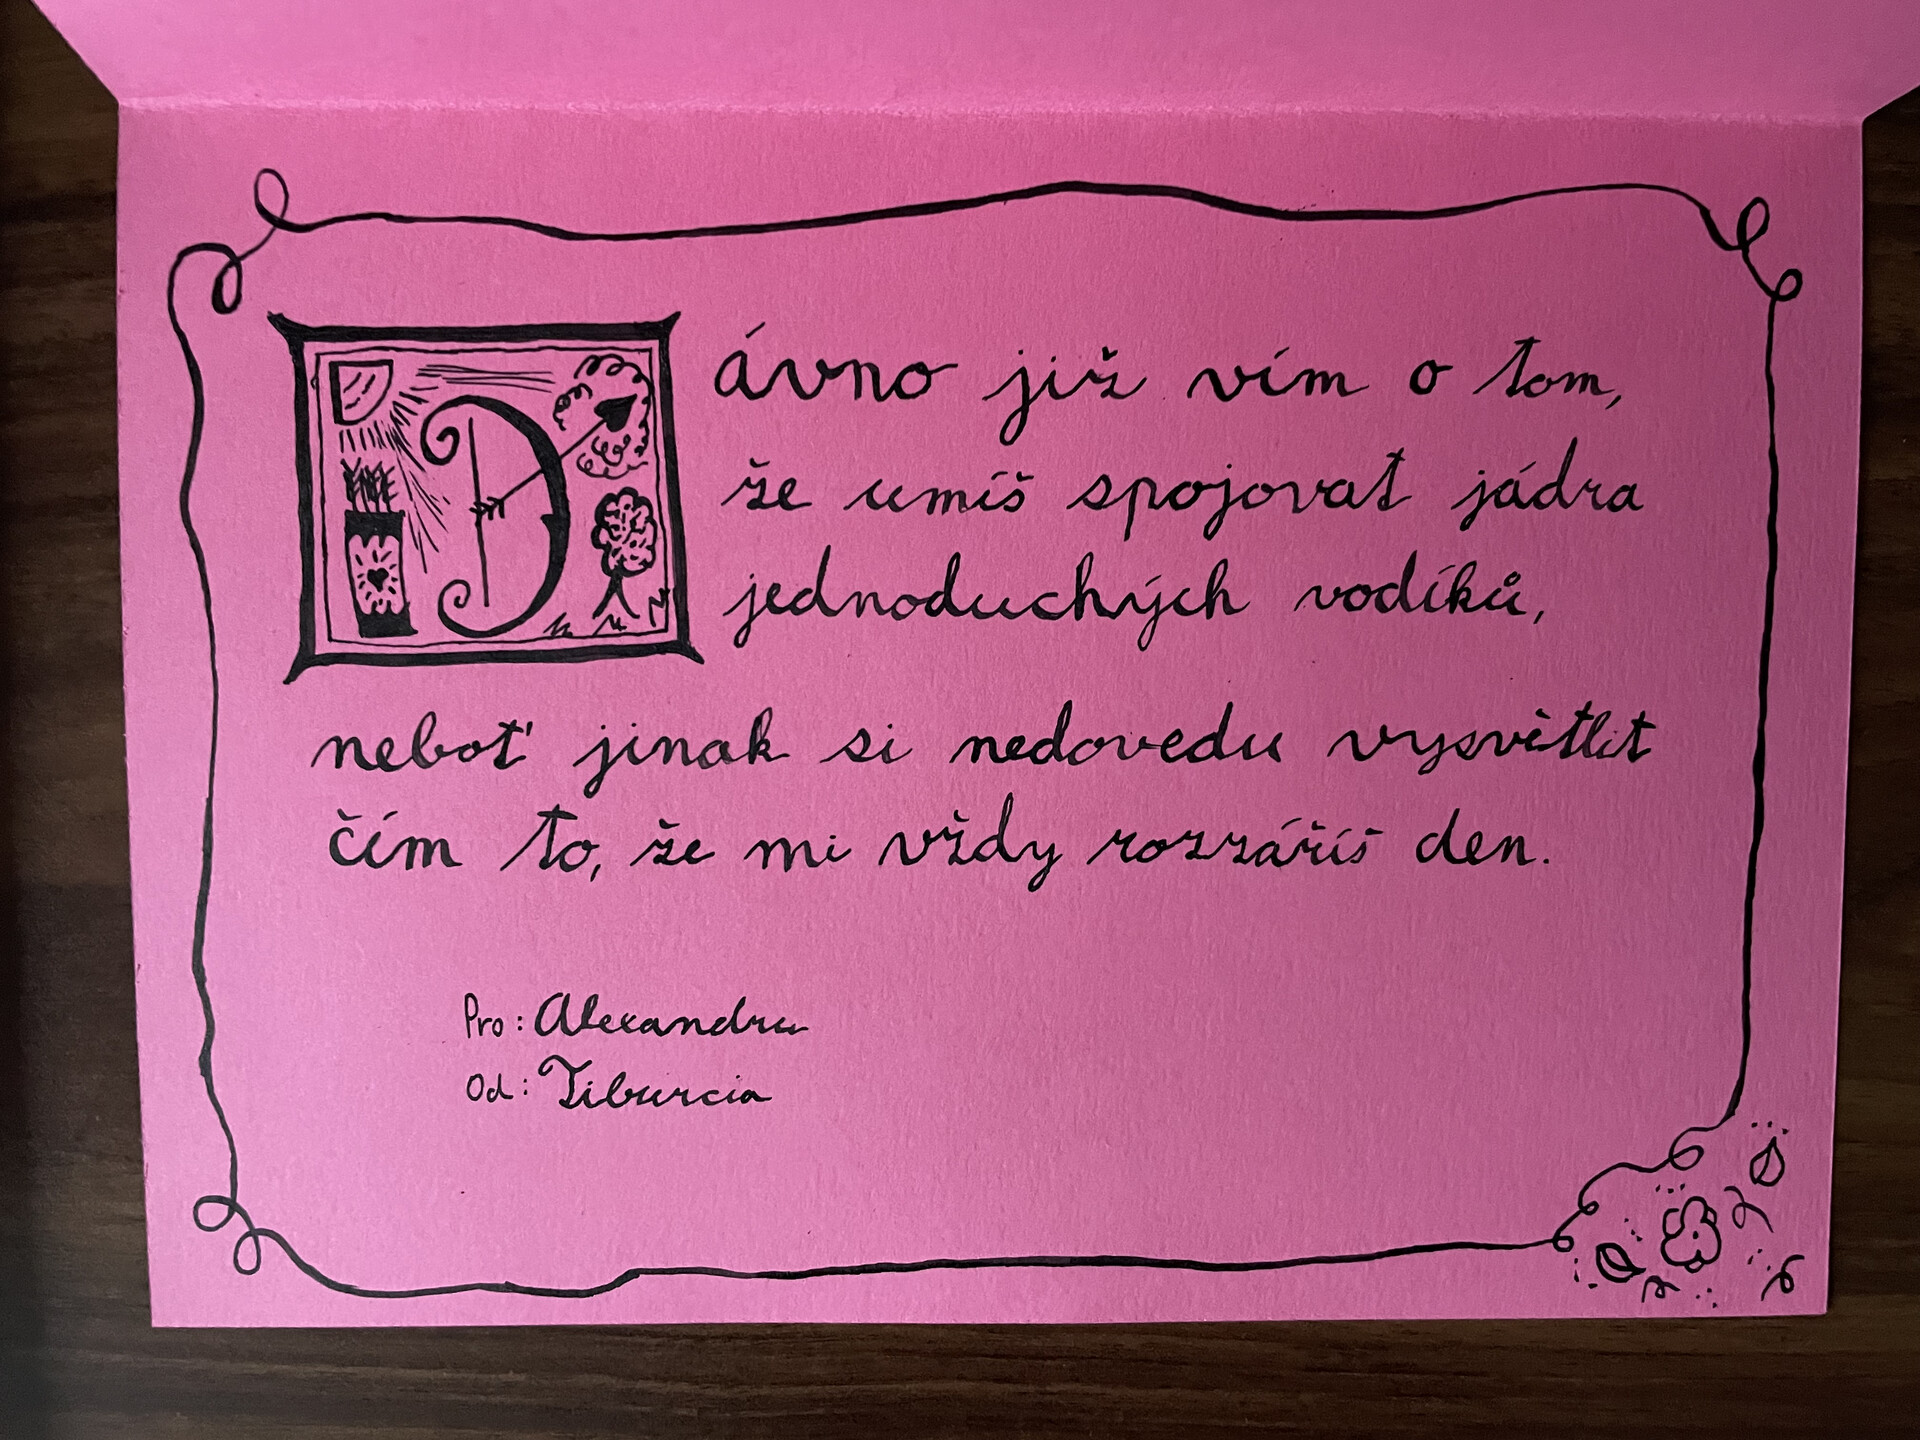 Dávno již vím o tom,
že umíš spojovat jádra
jednoduchých vodíků,
neboť jinak si nedovedu vysvětlit
čím to, že mi vždy rozzáříš den.
Pro: Alexandru
Od: Tiburcia